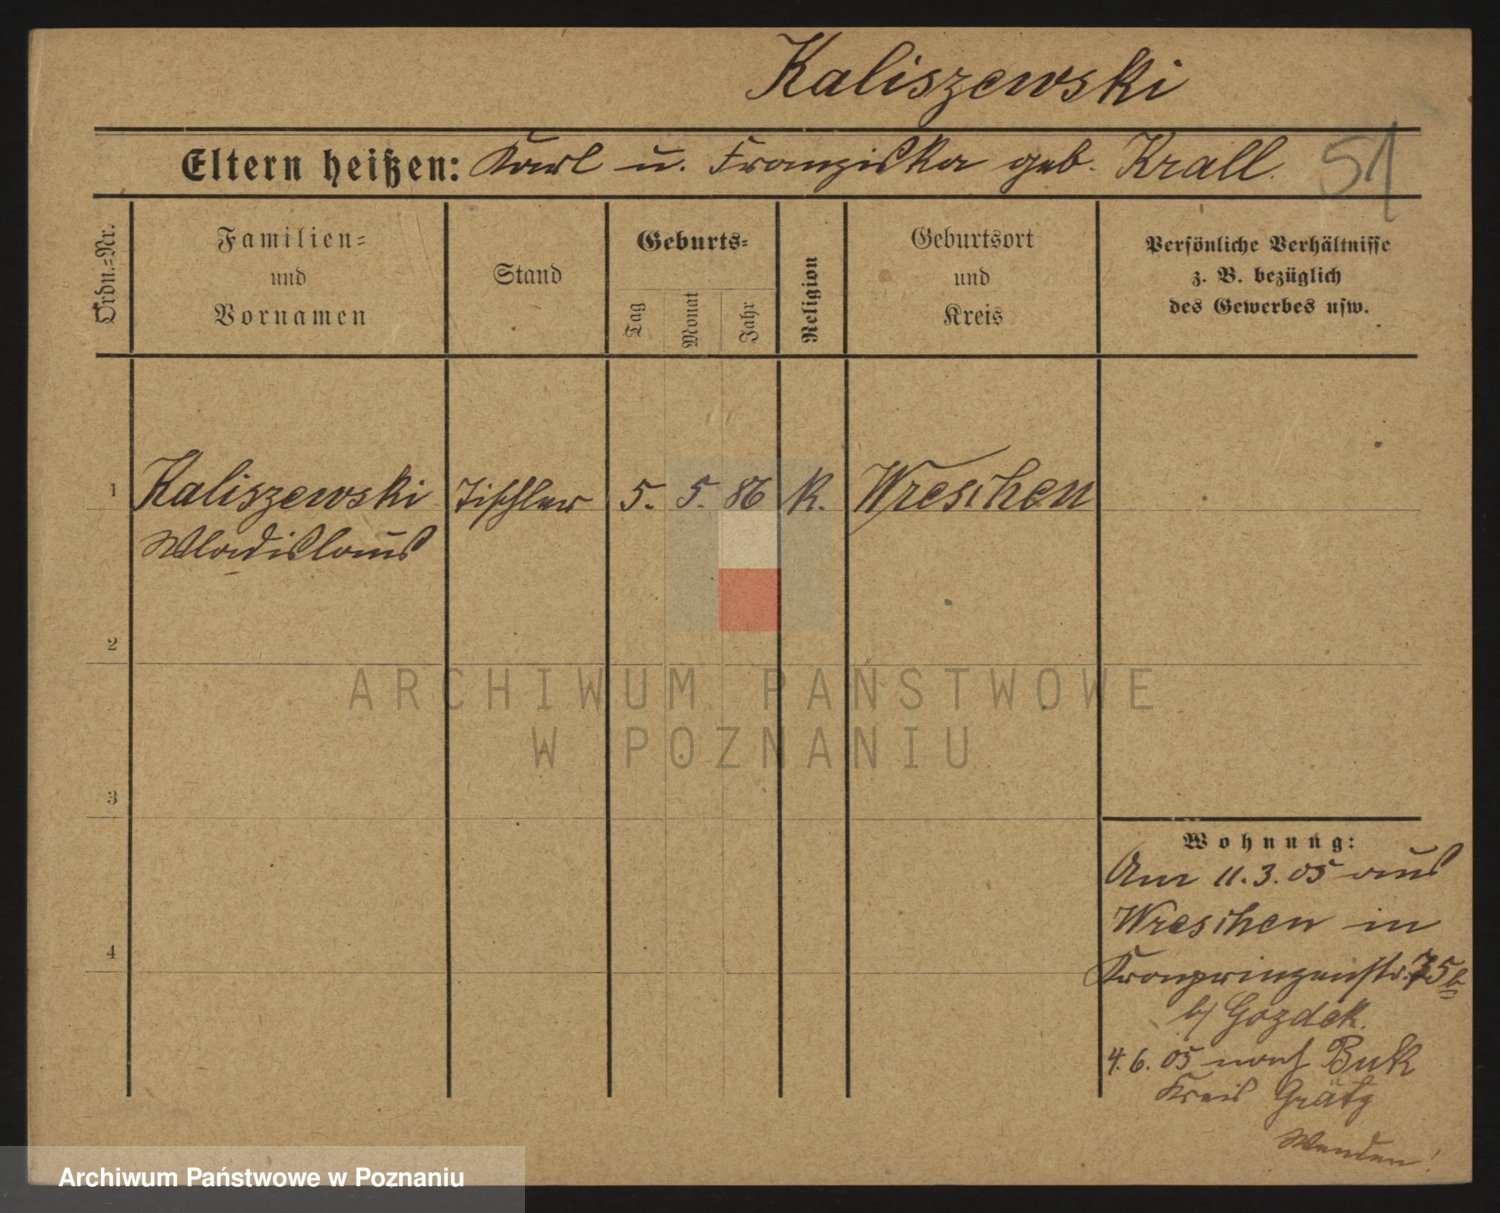 Kaliszewski
Eltern heißen: Karl u. Franziska geb. Krall.
51
Ordn.=Nr.
Familien=
und
Vornamen
Stand
Geburts=
Tag
Monat
Jahr
Religion
Geburtsort
und
Kreis
Persönliche Verhältnisse
z. B. bezüglich
des Gewerbes usw.
1 Kaliszewski Tischler 5. 5. 86 K. Wreschen
Wladislaus
2
ARCHIWUM PAŃSTWOWE
W POZNANIU
3
Wohnung:
Am 11.3.05 aus
Wreschen in
4
Kronprinzenstr. 75b
b/ Gozdek.
4.6.05 nach Buk
Kreis Grätz
Wenden!
Archiwum Państwowe w Poznaniu